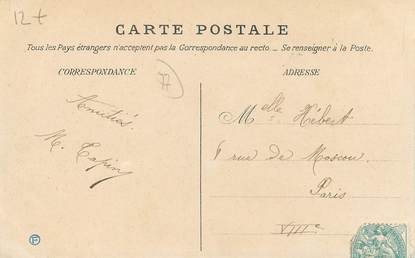 12 +
CARTE POSTALE
Tous les Pays étrangers n'acceptent pas la Correspondance au recto._ Se renseigner à la Poste.
CORRESPONDANCE
77
ADRESSE
Amitiés.
M. Tapin
Melle Hébert
6 rue de Moscou.
Paris
VIIIe